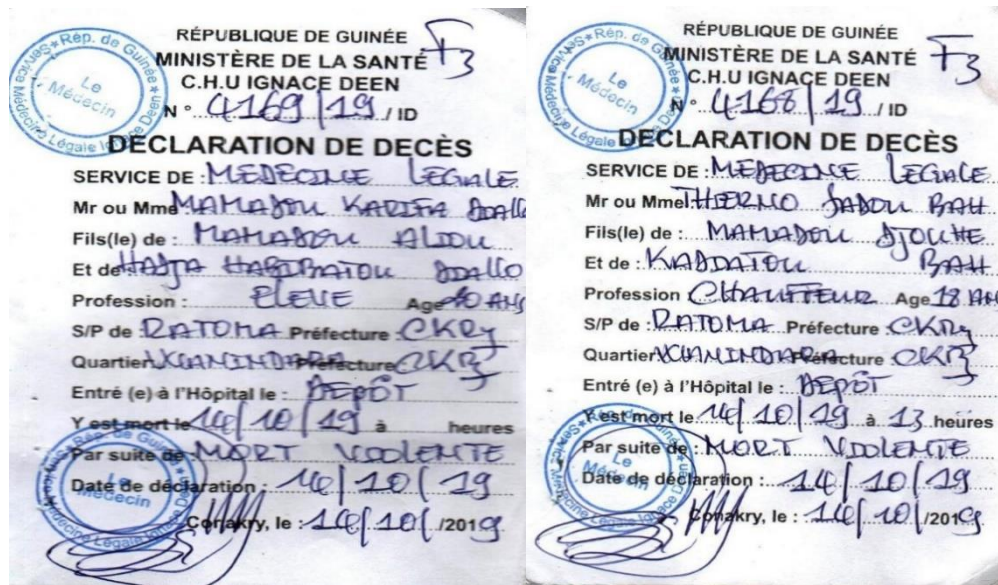 RÉPUBLIQUE DE GUINÉE
F3
MINISTÈRE DE LA SANTÉ
C.H.U IGNACE DEEN
N° 4169/19 / ID
DÉCLARATION DE DECÈS
SERVICE DE : MEDECINE LEGALE
Mr ou Mme MAMADOU KARIFA DIALLO
Fils(le) de : MAMADOU ALIOU
Et de HADJA HABIBATOU DIALLO
Profession : ELEVE Age ANS
S/P de RATOMA Préfecture CKRY
Quartier Préfecture CKRY
Entré (e) à l'Hôpital le : DEPÔT
Y est mort le 14/10/19 à heures
Par suite de MORT VIOLENTE
Date de déclaration : 14/10/19
Conakry, le : 14/10/ /2019
Rép. de Guinée
Service Médecine Légale Ignace Deen
Le Médecin
RÉPUBLIQUE DE GUINÉE
F3
MINISTÈRE DE LA SANTÉ
C.H.U IGNACE DEEN
N° 4168/19 / ID
DÉCLARATION DE DECÈS
SERVICE DE : MEDECINE LEGALE
Mr ou Mme THIERNO SADOU BAH
Fils(le) de : MAMADOU DJOUHE
Et de : KADDATOU BAH
Profession CHAUFFEUR Age 18 AN
S/P de : RATOMA Préfecture CKRY
Quartier Préfecture CKRY
Entré (e) à l'Hôpital le : DEPÔT
Y est mort le 14/10/19 à 13 heures
Par suite de : MORT VIOLENTE
Date de déclaration : 14/10/19
Conakry, le : 14/10/ /2019
Rép. de Guinée
Service Médecine Légale Ignace Deen
Le Médecin